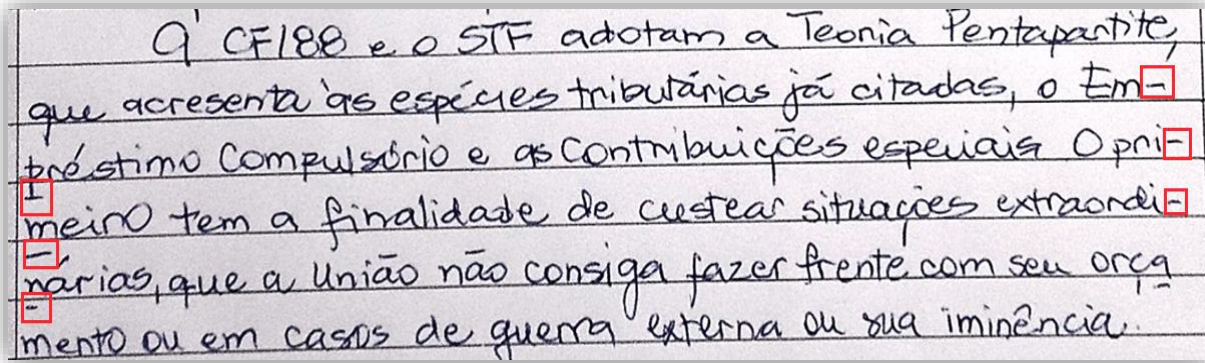 A CF/88 e o STF adotam a Teoria Pentapartite,
que acresenta às espécies tributárias já citadas, o Em-
préstimo Compulsório e as Contribuições especiais O pri-
meiro tem a finalidade de custear situações extraordi-
nárias, que a União não consiga fazer frente com seu orça
mento ou em casos de guerra externa ou sua iminência.